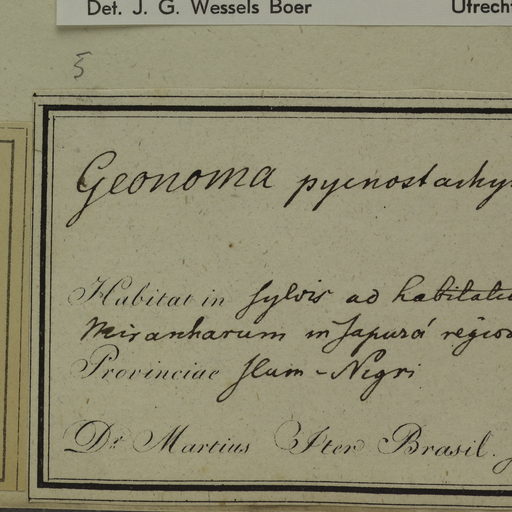 Det. J. G. Wessels Boer Utrecht
5
Geonoma pycnostachy
Habitat in sylvis ad
Miranharum in Japurá
Provinciae flum-Nigri
Dr Martius Iter Brasil.